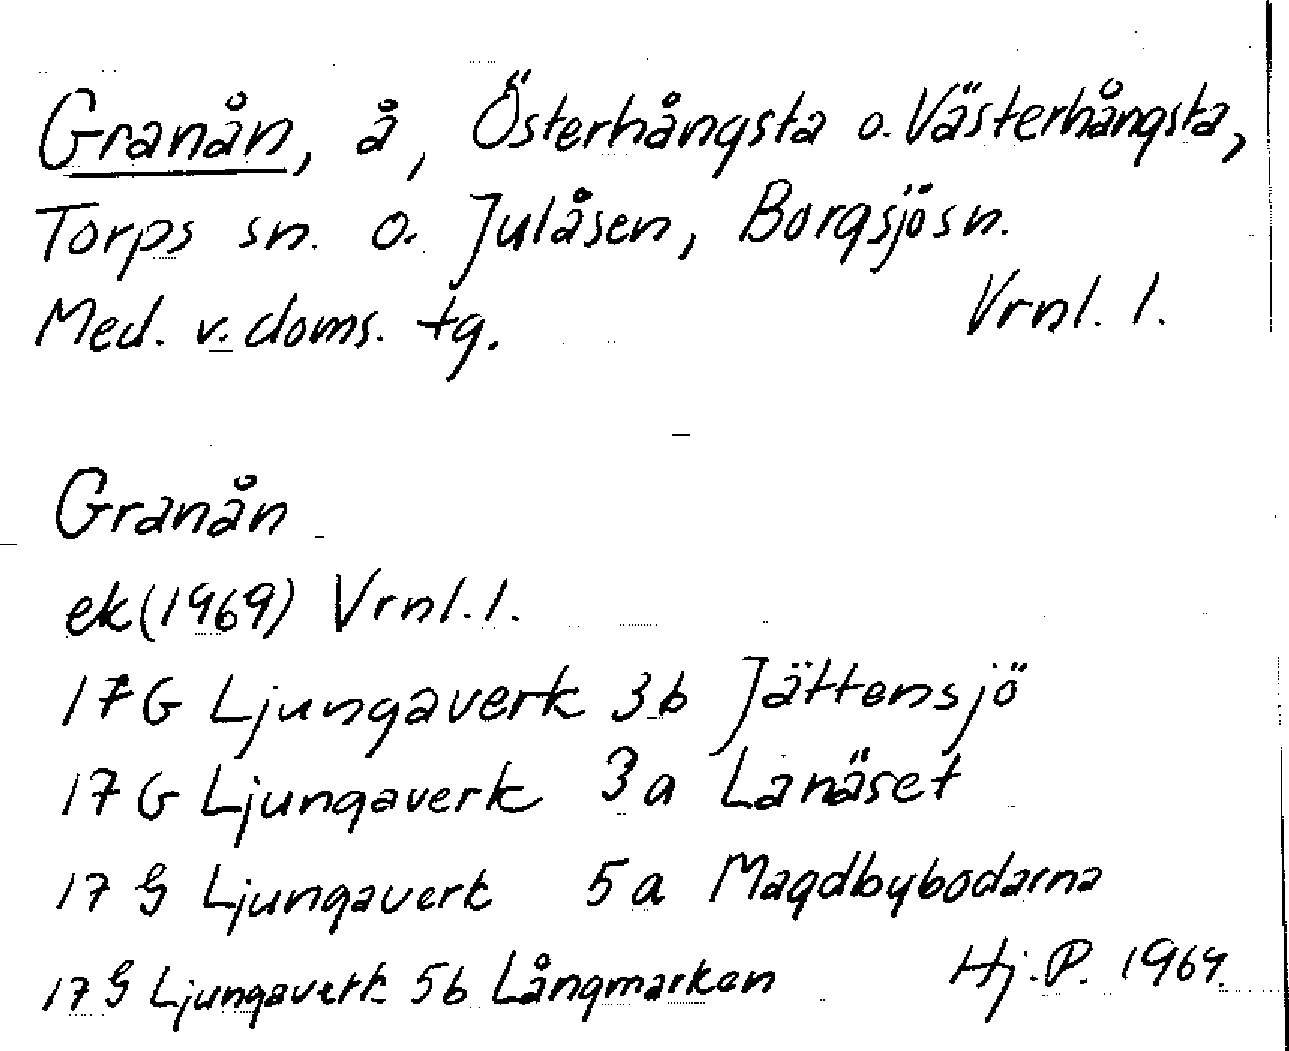 Granån, å, Österhångsta o. Västerhångsta,
Torps sn. o. Julåsen, Borgsjö sn.
Med. v. doms. tg. Vrnl. l.
Granån
ek (1969) Vrnl. l.
17 G Ljungaverk 3 b Jättensjö
17 G Ljungaverk 3 a Lanäset
17 G Ljungaverk 5 a Magdbybodarna
17 G Ljungaverk 5 b Långmarken Hj. P. 1969.